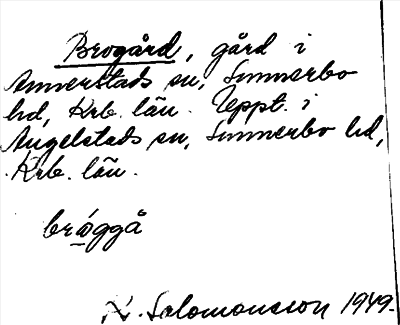 Brogård, gård i
Annerstads sn, Sunnerbo
hd, Krb. län. Uppt. i
Angelstads sn, Sunnerbo hd,
Krb. län.
brǿggå
K. Salomonsson 1949.